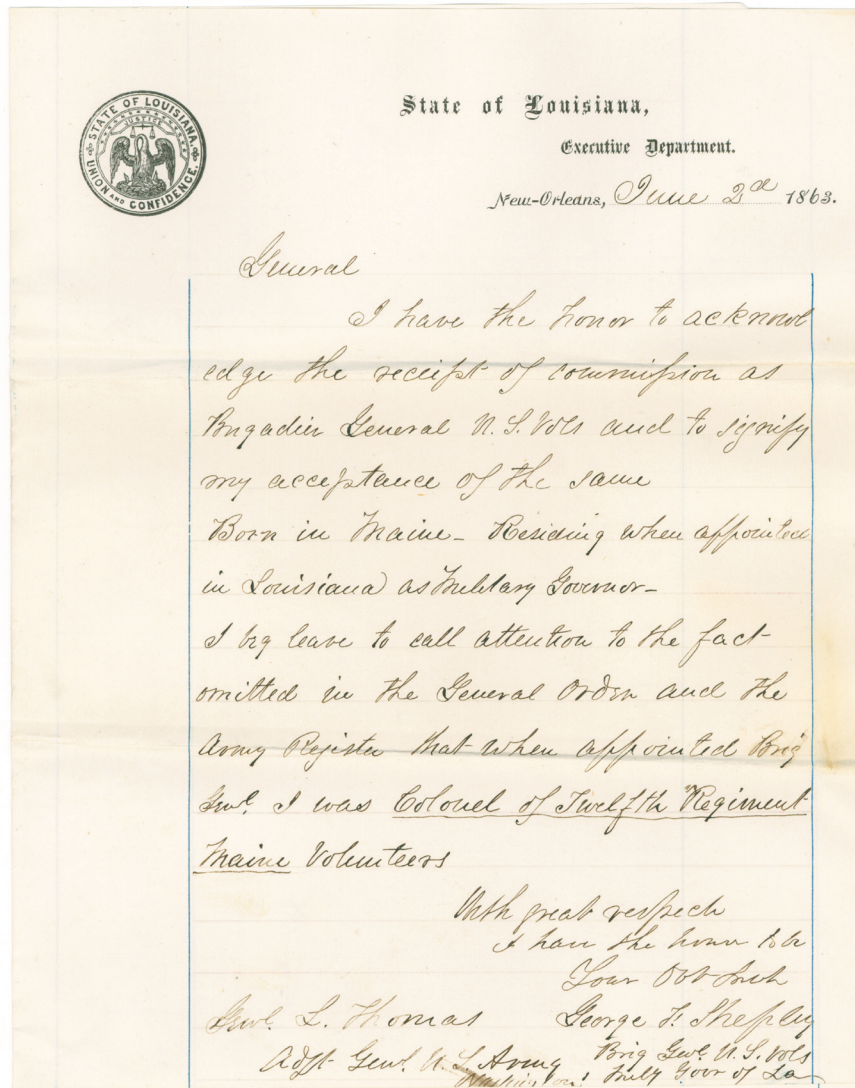 STATE OF LOUISIANA.
JUSTICE
UNION AND CONFIDENCE.
State of Louisiana,
Executive Department.
New-Orleans, June 2d 1863.
General
I have the honor to acknowl
edge the receipt of commission as
Brigadier General U. S. Vols and to signify
my acceptance of the same
Born in Maine - Residing when appointed
in Louisiana as Military Governor -
I beg leave to call attention to the fact
omitted in the General Order and the
Army Register that when appointed Brig
Genl. I was Colonel of Twelfth Regiment
Maine Volunteers
With great respect
I have the honor to be
Your Obt Svt
George F. Shepley
Genl. L. Thomas
Brig Genl. U. S. Vols
Adjt Genl. U. S. Army
Mily Govr of La
Washington